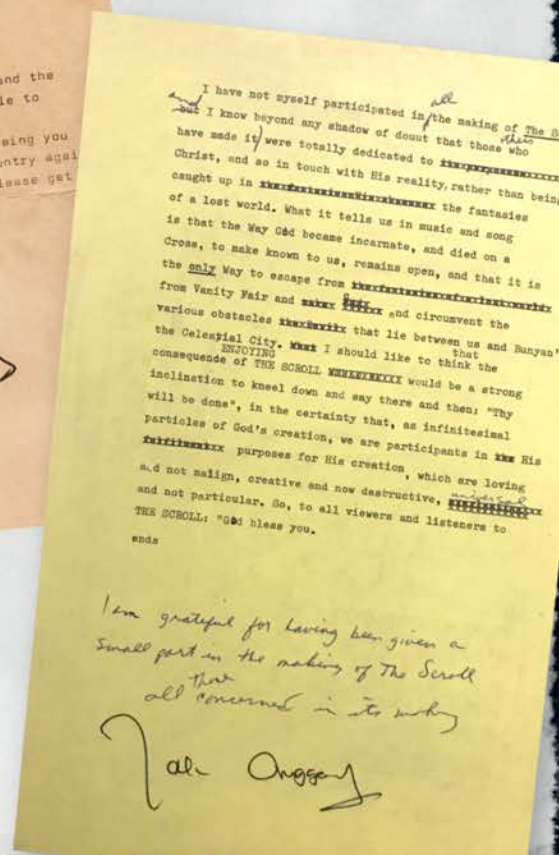 and the
le to
eing you
entry agai
lease get
all
I have not myself participated in the making of The S
and others
but I know beyond any shadow of doubt that those who
have made it were totally dedicated to
Christ, and so in touch with His reality, rather than being
caught up in the fantasies
of a lost world. What it tells us in music and song
is that the Way God became incarnate, and died on a
Cross, to make known to us, remains open, and that it is
the only Way to escape from
from Vanity Fair and and circumvent the
various obstacles that lie between us and Bunyan'
the Celestial City. I should like to think the
ENJOYING that
consequende of THE SCROLL would be a strong
inclination to kneel down and say there and then: "Thy
will be done", in the certainty that, as infinitesimal
particles of God's creation, we are participants in His
purposes for His creation, which are loving
and not malign, creative and now destructive, universal
and not particular. So, to all viewers and listeners to
THE SCROLL: "God bless you.
ends
I am grateful for having been given a
small part in the making of The Scroll
those
all concerned in its making